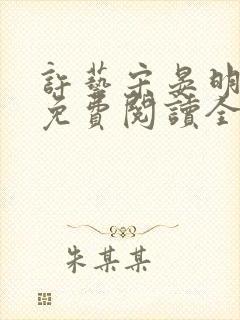 許藝宋晏明
免費閱讀全
朱某某